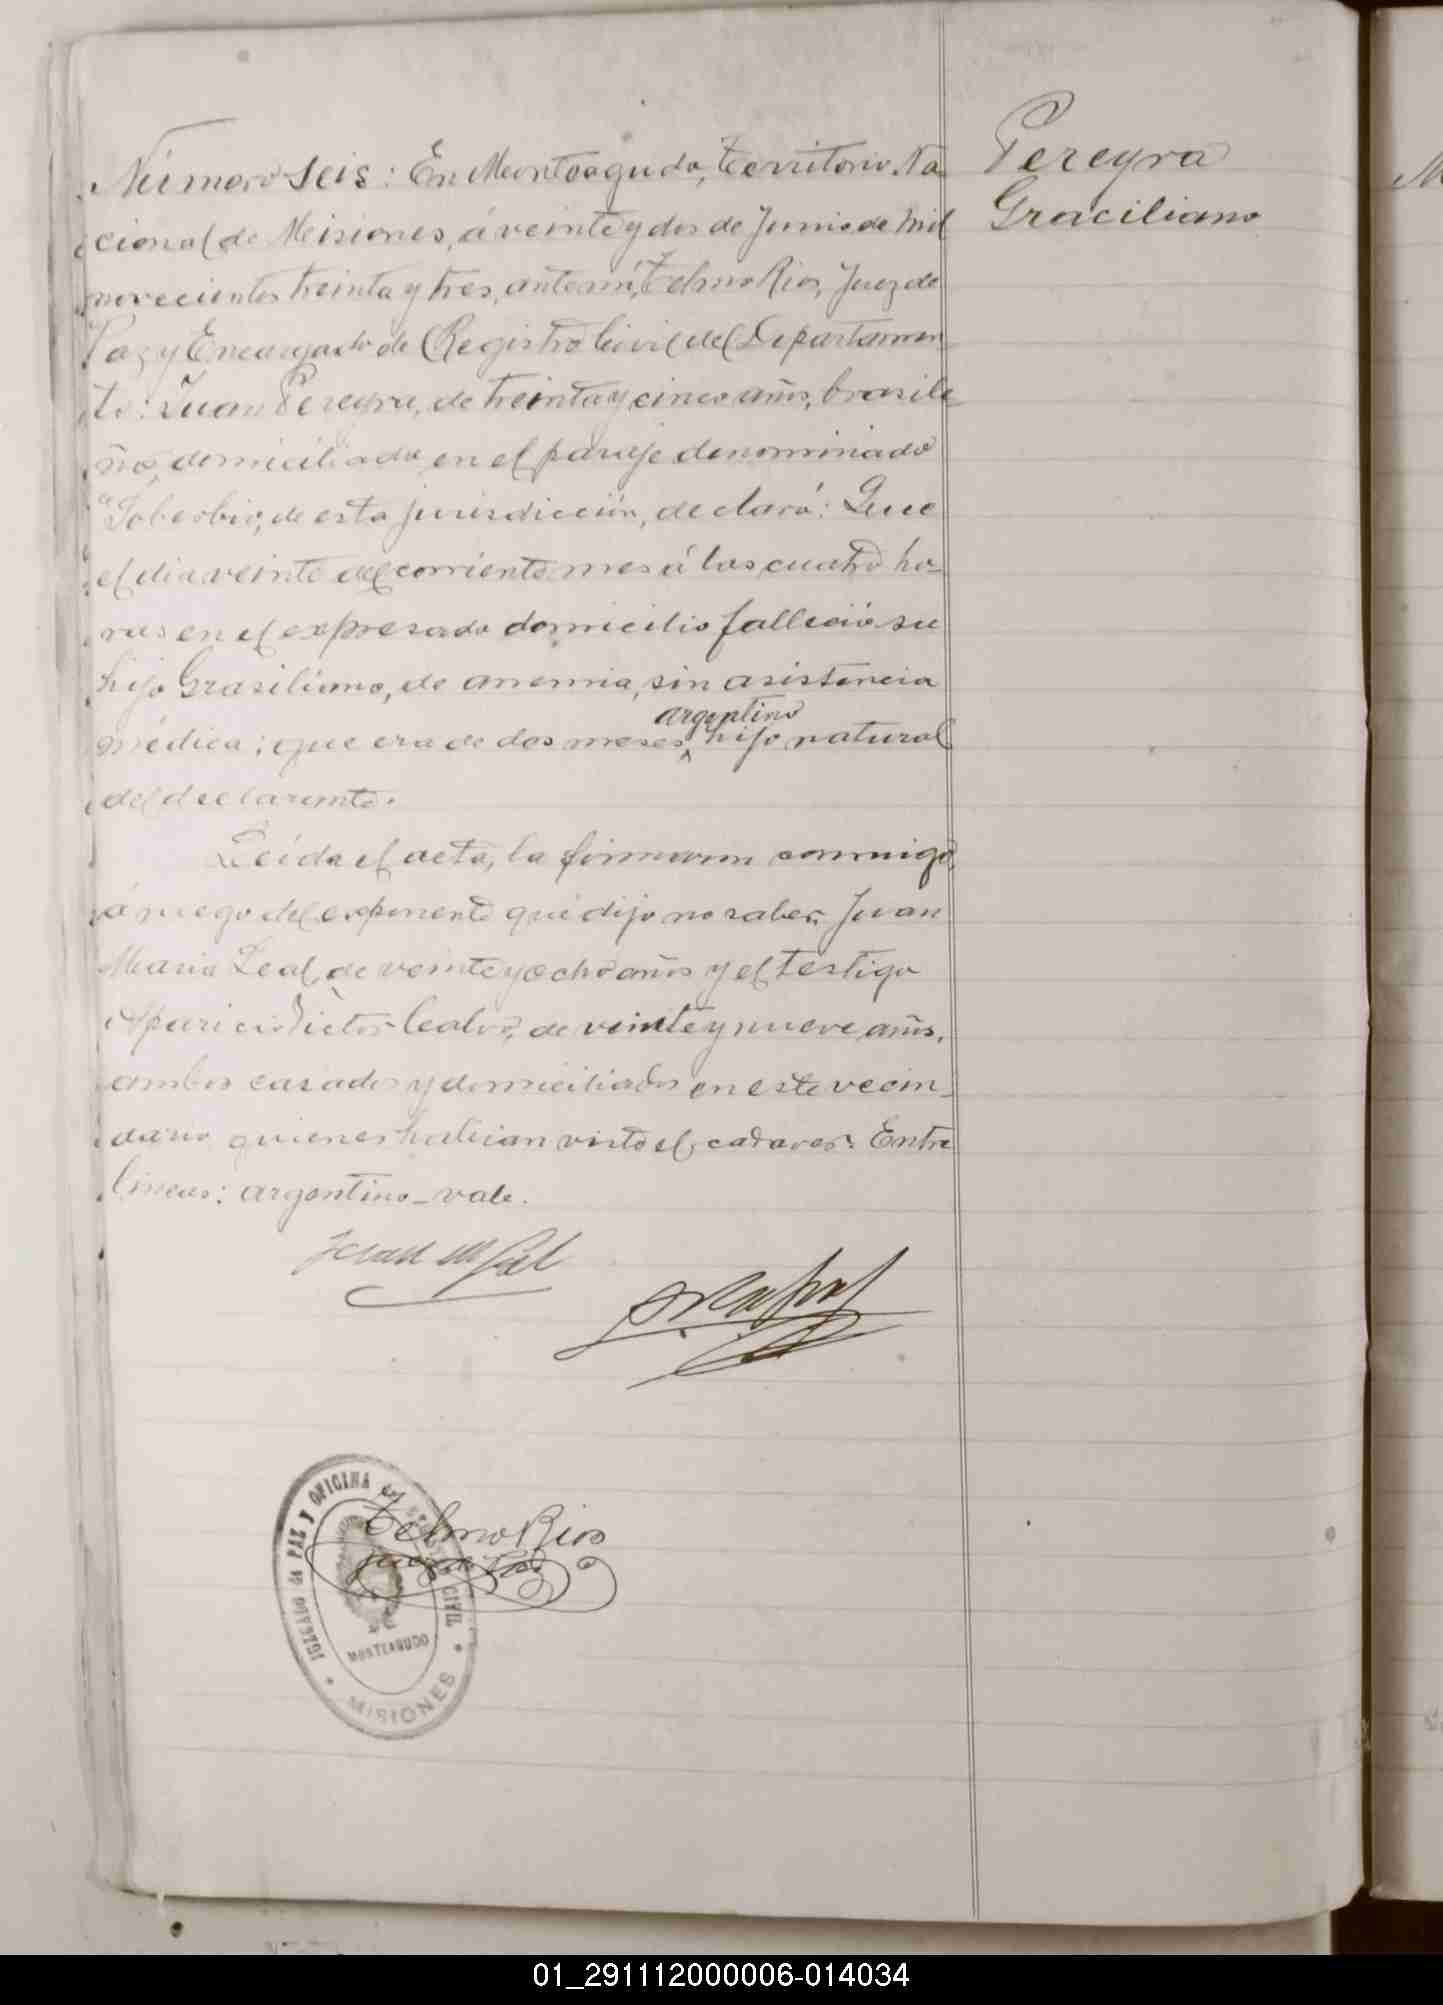 Pereyra
Graciliano
Número Seis: En Monteagudo, Territorio Na
cional de Misiones, á veinte y dos de Junio de mil
novecientos treinta y tres, ante mí, Telmo Rios, Juez de
Paz y Encargado de Registro Civil del Departamen
to: Juan Pereyra, de treinta y cinco años, brasile
ño, domiciliado en el paraje denominado
"Soberbio, de esta jurisdicción, declaró: Que
el dia veinte del corriente mes á las cuatro ho-
ras en el expresado domicilio falleció su
hijo Grasiliano, de anemia, sin asistencia
argentino
médica; que era de dos meses, hijo natural
del declarante.
Leída el acta, la firmaron conmigo,
á ruego del exponente que dijo no saber, Juan
Maria Leal, de veinte y ocho años y el testigo
Aparicio Victor Calvo, de veinte y nueve años,
ambos casados y domiciliados en este vecin-
dario quienes habian visto el cadaver. Entre
lineas: argentino - vale.
Juan M Leal
Telmo Rios
Juez de Paz
JUZGADO de PAZ y OFICINA del REGISTRO CIVIL
MONTEAGUDO
MISIONES
01_291112000006-014034